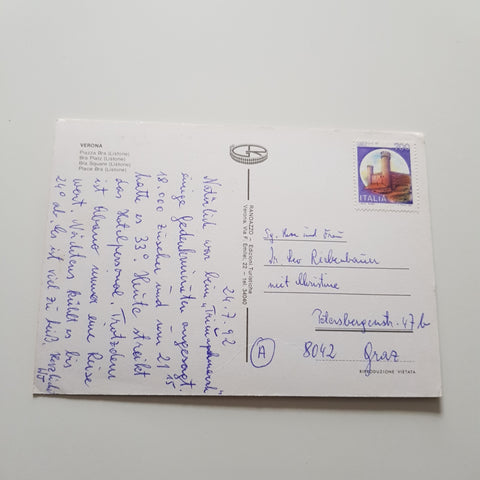 VERONA
Piazza Bra (Listone)
Bra Platz (Listone)
Bra Square (Listone)
Place Bra (Listone)
24.7.92
Natürlich war beim „Triumphmarsch“
einige Gedenkminuten angesagt.
18.000 Zuseher und um 21 15
hatte es 33°. Heute streikt
das Hotelpersonal. Trotzdem
ist Abano immer eine Reise
wert. Nächtens kühlt es bis
24° ab. Es ist viel zu heiß. Herzlichst
RANDAZZO - Edizioni Turistiche
Verona Via F. Emilei, 22 - tel. 34040
200
ITALIA
Sg. Herr und Frau
Dr. Leo
mit Christine
Petersbergenstr. 47 b
A
8042 Graz
RIPRODUZIONE VIETATA